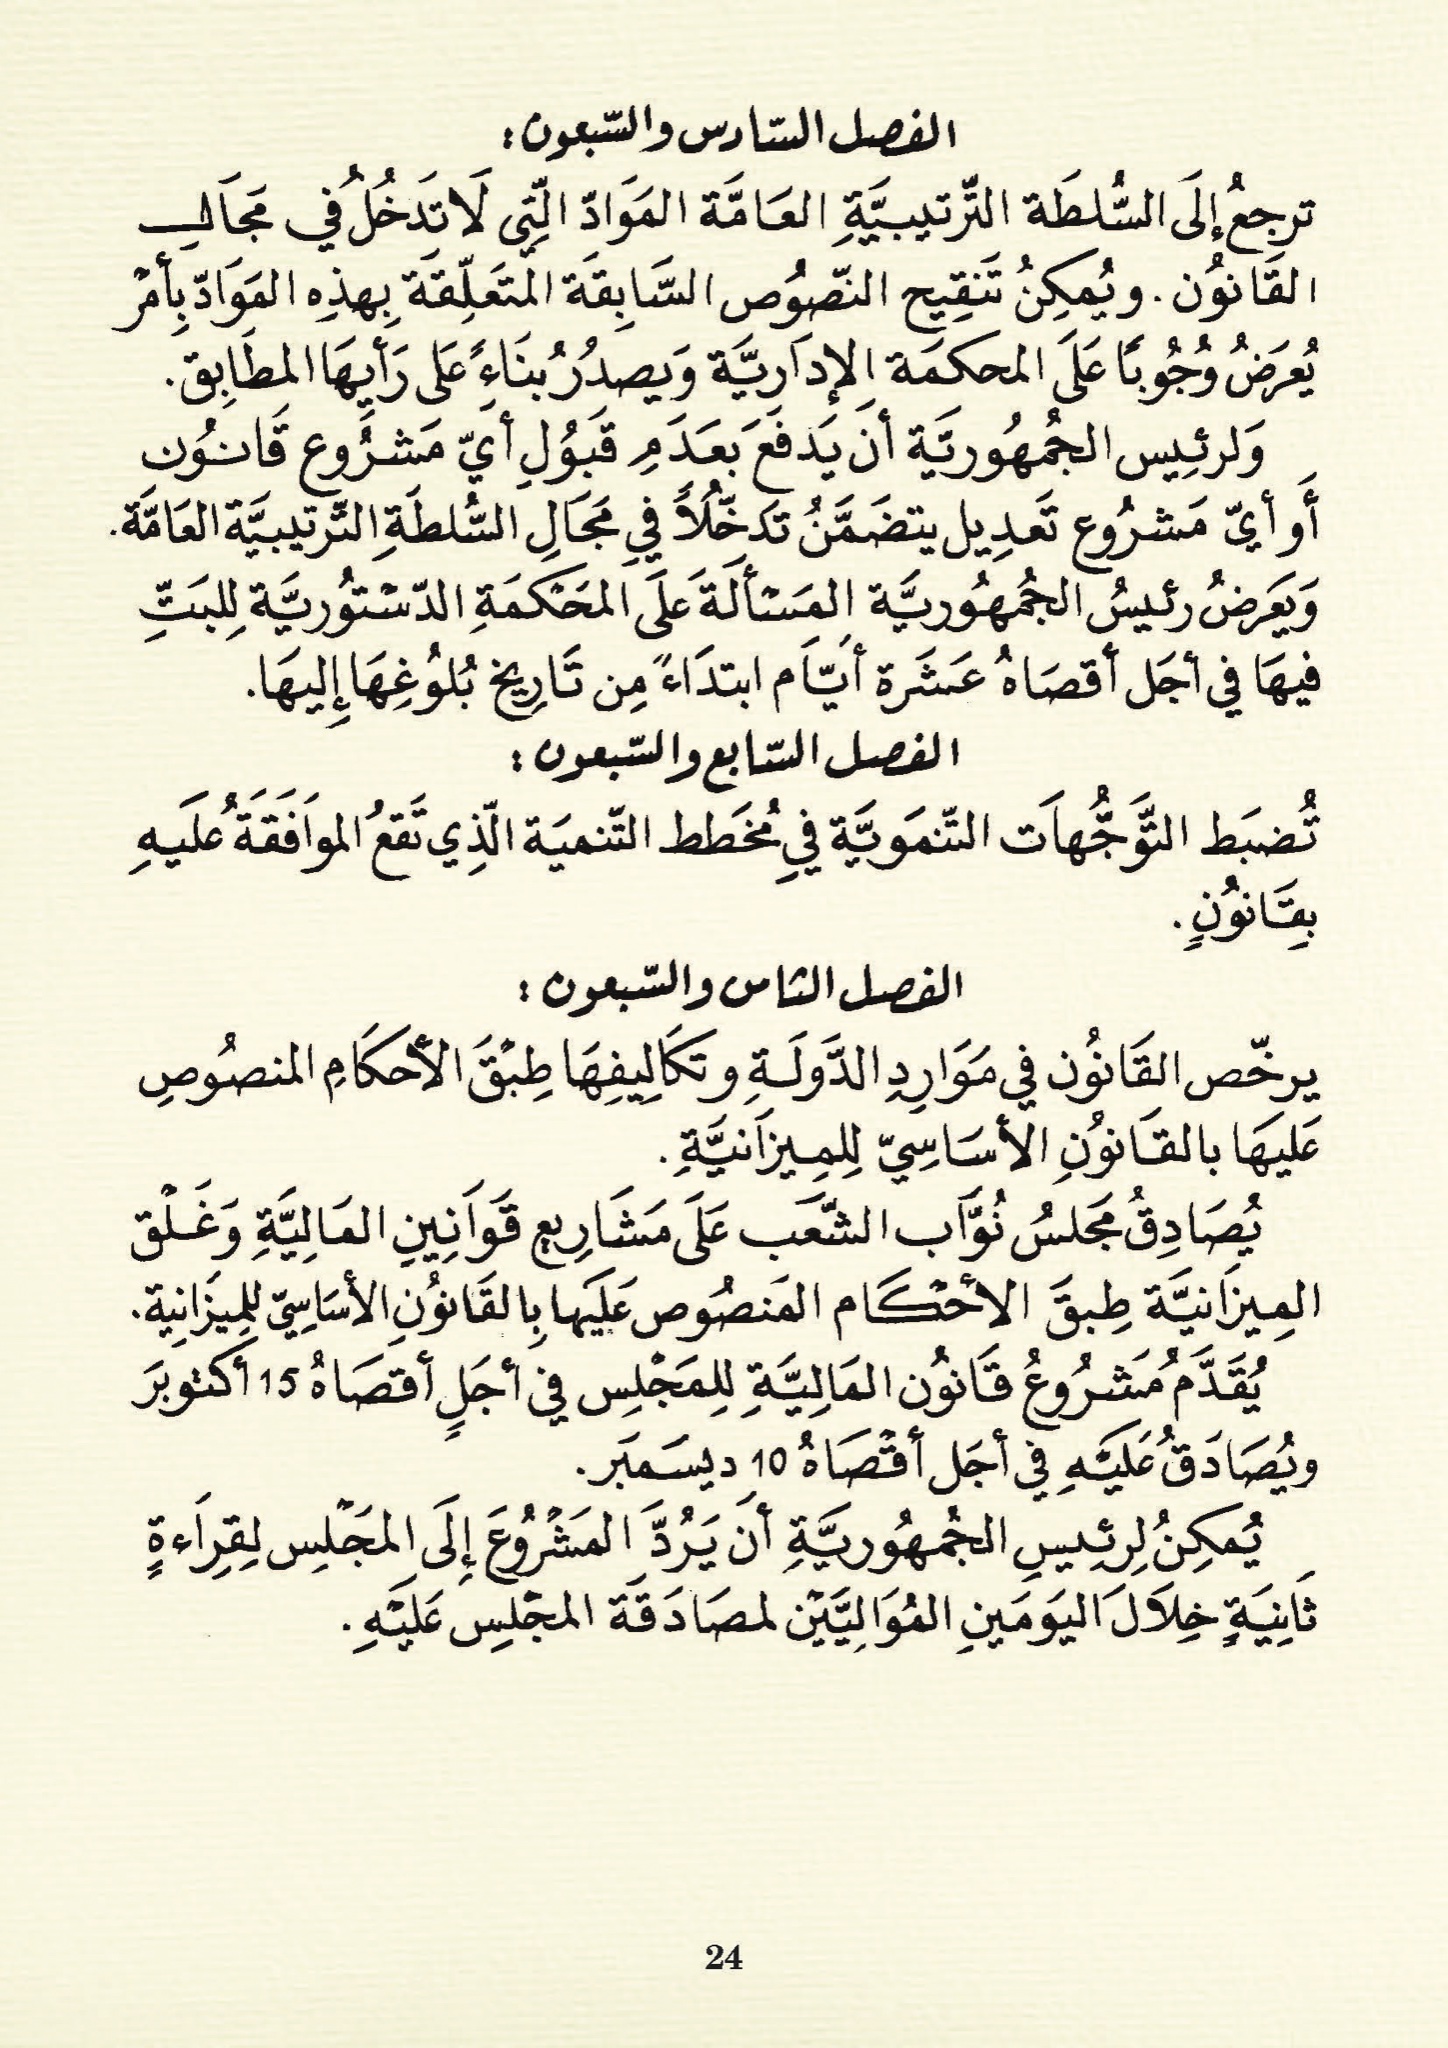 الفصل السّادس والسّبعون:
ترجعُ إلَى السُّلطَة التّرتيبيَّةِ العَامَّة المَوَادّ الّتِي لَا تَدخُلُ في مَجَالِ
القَانُون. ويُمكِنُ تَنقِيح النّصُوص السَّابِقَة المتَعَلِّقَة بِهذِه المَوَادّ بِأمْر
يُعرَضُ وُجُوبًا عَلَى المحكمَة الإدَاريَّة وَيصدُرُ بنَاءً عَلى رَأيِهَا المطَابِق.
وَلرئِيس الجُمهُوريَّة أن يَدفَعَ بعَدَمِ قَبُولِ أيّ مَشرُوع قَانُون
أَو أيّ مَشرُوع تَعدِيل يتضَمَّنُ تدَخّلًا في مَجَالِ السُّلطَةِ التَّرتيبيَّة العَامَّة.
وَيَعرَضُ رئيسُ الجُمهُوريَّة المَسْألَةَ علَى المَحْكمَةِ الدّسْتُوريَّة لِلبَتِّ
فيهَا في أجَل أقصَاهُ عَشَرة أيَّام ابتدَاءً مِن تَاريخ بُلُوغِهَا إِليهَا.
الفصل السّابع والسّبعون:
تُضبَط التَّوَجُّهَات التّنمَويَّة في مُخَطط التّنميَة الّذِي تَقعُ الموَافَقَةُ عَلَيهِ
بِقَانُونٍ.
الفصل الثامن والسّبعون:
يرخّص القَانُون في مَوَارِدِ الدَّولَةِ وتكَالِيفِهَا طِبْقَ الأحكَامِ المنصُوصِ
عَليهَا بالقَانُونِ الأسَاسِيّ لِلمِيزَانيَّةِ.
يُصَادِقُ مَجَلسُ نُوَّاب الشَّعَب عَلَى مَشَارِيعِ قَوَانِينِ المَالِيَّةِ وَغَلْق
المِيزَانيَّة طِبقَ الأحْكَام المَنصُوص عَلَيها بِالقَانُونِ الأسَاسِيّ لِلمِيزَانِية.
يُقَدَّمُ مَشرُوعُ قَانُون المَالِيَّةِ لِلمَجْلِس في أجَلٍ أقصَاهُ 15 أكتوبرَ
ويُصَادَقُ عَلَيْهِ في أجَل أقْصَاهُ 10 ديسَمبَر.
يُمكِنُ لِرئِيسِ الجُمهُوريَّةِ أن يَرُدَّ المَشْرُوعَ إِلَى المَجْلِس لِقِرَاءةٍ
ثَانِيَةٍ خِلَالَ اليَومَينِ المُوَالِيَيْن لمصَادَقَة المجْلِس عَلَيْهِ.
24